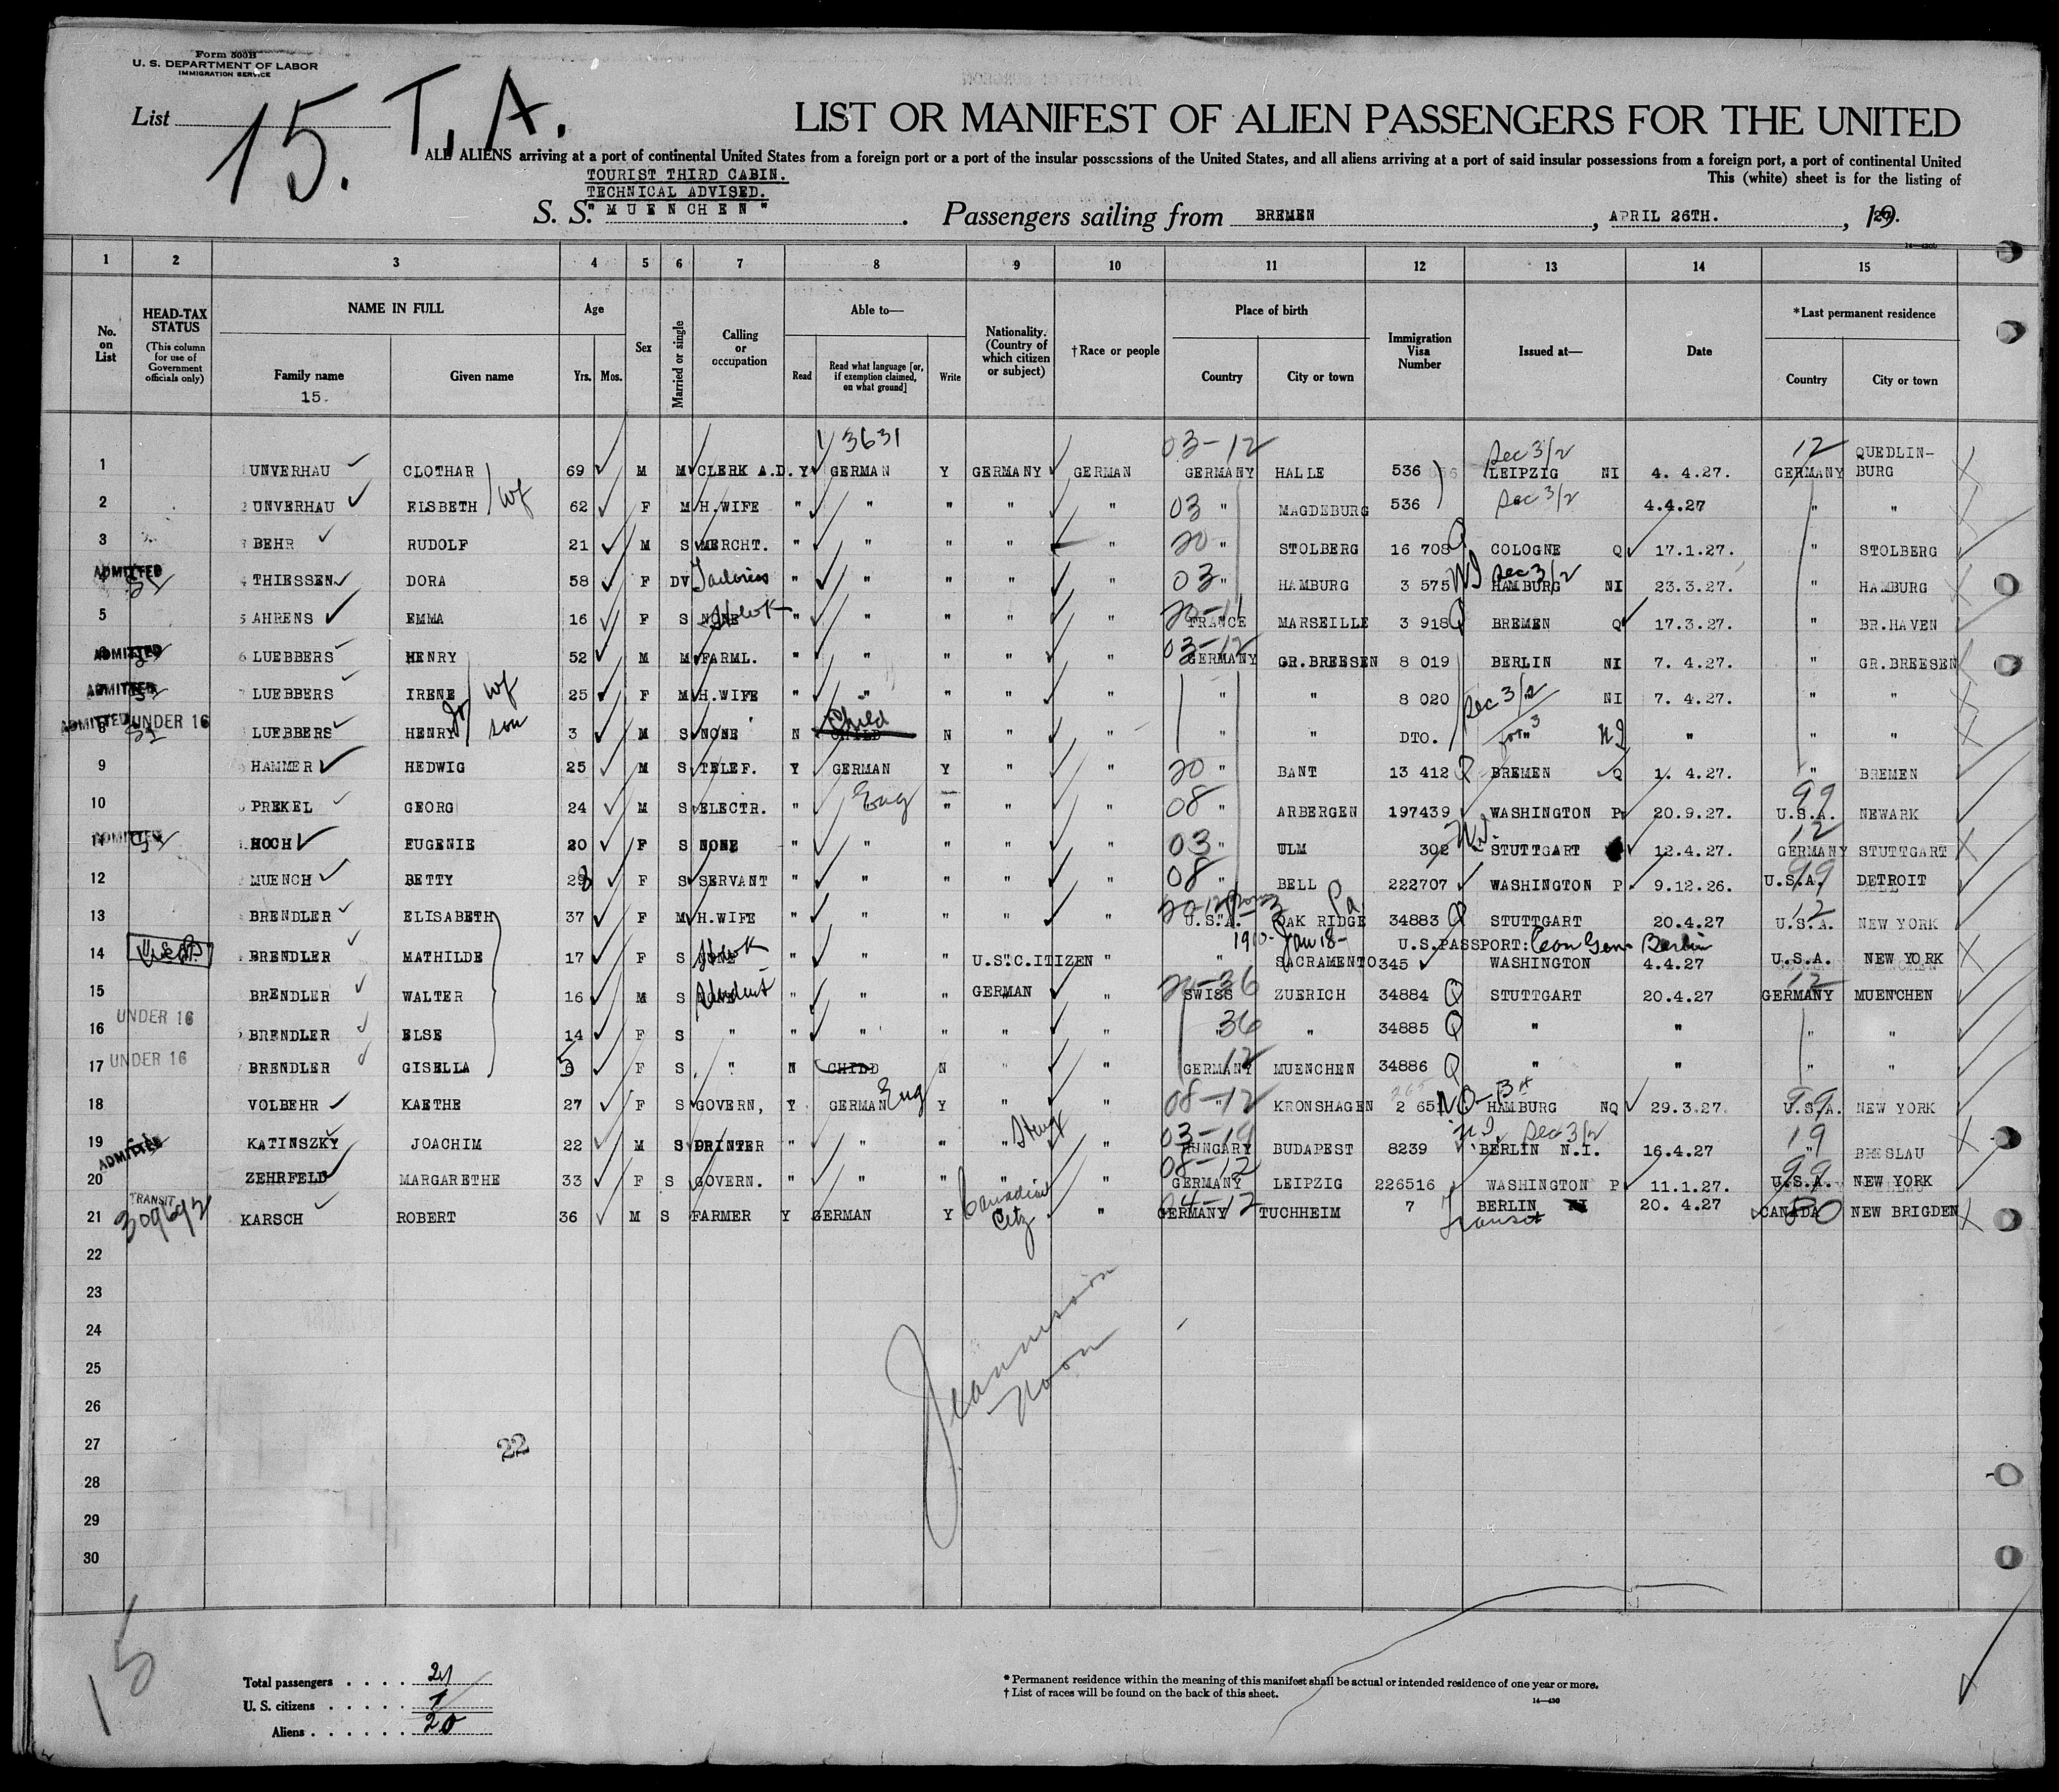 Form 500B
U. S. DEPARTMENT OF LABOR
IMMIGRATION SERVICE
List 15. T. A.
LIST OR MANIFEST OF ALIEN PASSENGERS FOR THE UNITED
ALL ALIENS arriving at a port of continental United States from a foreign port or a port of the insular possessions of the United States, and all aliens arriving at a port of said insular possessions from a foreign port, a port of continental United
TOURIST THIRD CABIN. This (white) sheet is for the listing of
TECHNICAL ADVISED.
S. S. "MUENCHEN". Passengers sailing from BREMEN, APRIL 26TH., 1927.
1 2 3 4 5 6 7 8 9 10 11 12 13 14 15
No. on List HEAD-TAX STATUS (This column for use of Government officials only) NAME IN FULL Family name Given name Age Yrs. Mos. Sex Married or single Calling or occupation Able to— Read Read what language [or, if exemption claimed, on what ground] Write Nationality. (Country of which citizen or subject) †Race or people Place of birth Country City or town Immigration Visa Number Issued at— Date *Last permanent residence Country City or town
15.
3631 03-12 Sec 3/2 12 QUEDLIN-
1 UNVERHAU CLOTHAR 69 M M CLERK A.D. Y GERMAN Y GERMANY GERMAN GERMANY HALLE 536 LEIPZIG NI 4. 4.27. GERMANY BURG
2 UNVERHAU ELSBETH wf 62 F M H.WIFE " " " " " 03 " MAGDEBURG 536 Sec 3/2 4.4.27 " "
3 BEHR RUDOLF 21 M S MERCHT. " " " " " 20 " STOLBERG 16 708 Q COLOGNE Q 17.1.27. " STOLBERG
ADMITTED Sec 3/2
4 THIESSEN DORA 58 F DV Tailoress " " " " " 03 " HAMBURG 3 575 NI HAMBURG NI 23.3.27. " HAMBURG
5 AHRENS EMMA 16 F S NONE " " " " " 20-11 FRANCE MARSEILLE 3 918 Q BREMEN Q 17.3.27. " BR.HAVEN
ADMITTED 03-12
6 LUEBBERS HENRY 52 M M FARML. " " " " " GERMANY GR.BREESEN 8 019 BERLIN NI 7. 4.27. " GR.BREESEN
ADMITTED
7 LUEBBERS IRENE wf 25 F M H.WIFE " " " " " " " 8 020 Sec 3/2 NI 7. 4.27. " "
ADMITTED UNDER 16
8 LUEBBERS HENRY Jr son 3 M S NONE N CHILD Child N " " " " DTO. " NI " " "
9 HAMMER HEDWIG 25 M S TELEF. Y GERMAN Y " " 20 " BANT 13 412 Q BREMEN Q 1. 4.27. " BREMEN
10 PREKEL GEORG 24 M S ELECTR. " " Eng " " " 08 " ARBERGEN 197439 WASHINGTON P 20.9.27. 99 U.S.A. NEWARK
ADMITTED
11 HOCH EUGENIE 20 F S NONE " " " " " 03 " ULM 302 NI STUTTGART 12.4.27. 12 GERMANY STUTTGART
12 MUENCH BETTY 28 F S SERVANT " " " " " 08 " BELL 222707 WASHINGTON P 9.12.26. 99 U.S.A. DETROIT
13 BRENDLER ELISABETH 37 F M H.WIFE " " " " " 20-12 U.S.A. OAK RIDGE Pa 34883 Q STUTTGART 20.4.27 12 U.S.A. NEW YORK
1910- Jan 18- U.S.PASSPORT: Con Gen Berlin
14 BRENDLER MATHILDE 17 F S NONE " " " U.S. CITIZEN " " SACRAMENTO 345 WASHINGTON 4.4.27 U.S.A. NEW YORK
15 BRENDLER WALTER 16 M S Student " " " GERMAN " 20-36 SWISS ZUERICH 34884 Q STUTTGART 20.4.27 12 GERMANY MUENCHEN
UNDER 16
16 BRENDLER ELSE 14 F S " " " " " " 36 " " 34885 Q " " " "
UNDER 16
17 BRENDLER GISELLA 5 F S " N CHILD N " " 12 GERMANY MUENCHEN 34886 Q " " " "
18 VOLBEHR KAETHE 27 F S GOVERN, Y GERMAN Eng Y " " 08-12 " KRONSHAGEN 2 651 HAMBURG NQ 29.3.27. 99 U.S.A. NEW YORK
ADMITTED 03-19 NI. Sec 3/2 19
19 KATINSZKY JOACHIM 22 M S PRINTER " " " " Hung " HUNGARY BUDAPEST 8239 BERLIN N.I. 16.4.27 " BRESLAU
20 ZEHRFELD MARGARETHE 33 F S GOVERN. " " " " " 08-12 GERMANY LEIPZIG 226516 WASHINGTON P 11.1.27. 99 U.S.A. NEW YORK
TRANSIT 309692
21 KARSCH ROBERT 36 M S FARMER Y GERMAN Y Canadian Citz " 04-12 GERMANY TUCHHEIM 7 BERLIN Transit 20. 4.27 CANADA NEW BRIGDEN
22
23
24
25
26
27
22
28
29
30
Noon
15
Total passengers . . . . 21
U. S. citizens . . . . . 1
Aliens . . . . . . 20
* Permanent residence within the meaning of this manifest shall be actual or intended residence of one year or more.
† List of races will be found on the back of this sheet.
14—430